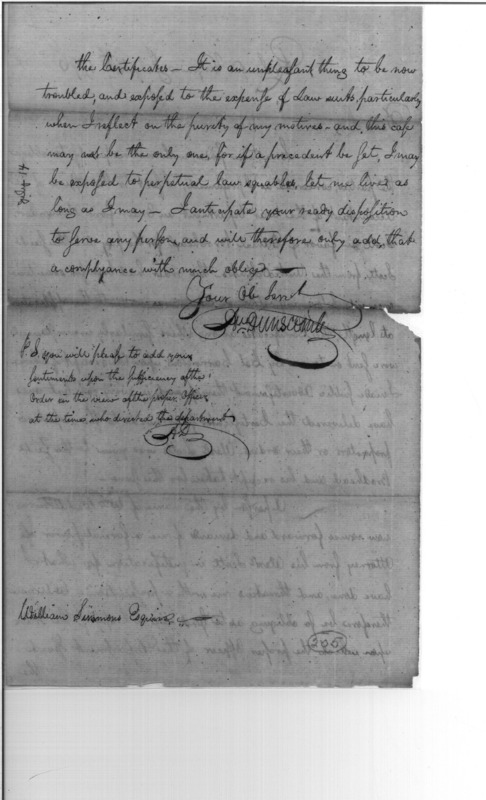 the Certificates — It is an unpleasant thing to be now
troubled, and exposed to the expense of Law suits, particularly
when I reflect on the purity of my motives — and, this case
may not be the only one, for if a precedent be set, I may
be exposed to perpetual law squables, let me live as
long as I may — I anticipate your ready disposition
to serve any person, and will therefore only add, that
a complyance with much oblige —
Your Ob Servt
Dunscomb
P.S. you will please to add your
sentiments upon the sufficiency of the
Order in the view of the proper Officer
at the time who directed the department
AD
William Simmons Esquire